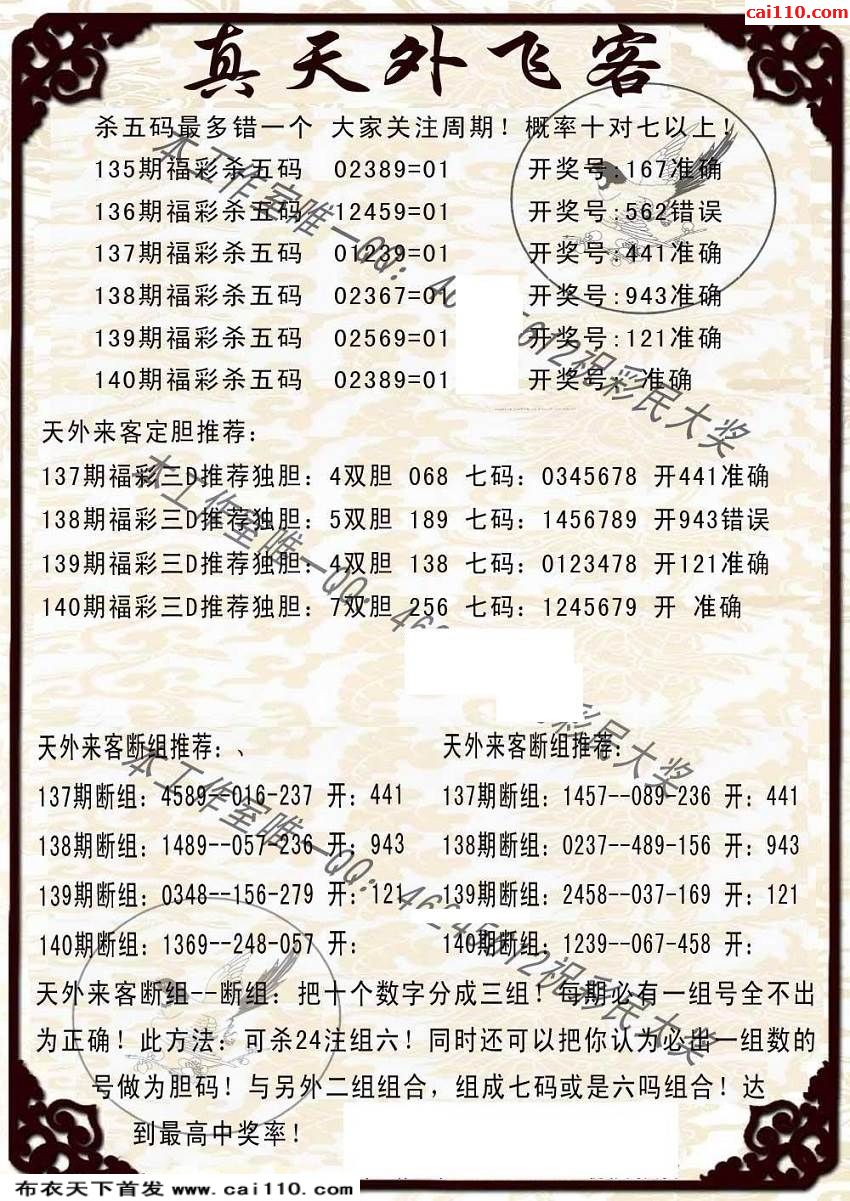 cai110.com
真天外飞客
杀五码最多错一个 大家关注周期！概率十对七以上！
135期福彩杀五码 02389=01 开奖号:167准确
136期福彩杀五码 12459=01 开奖号:562错误
137期福彩杀五码 01239=01 开奖号:441准确
138期福彩杀五码 02367=01 开奖号:943准确
139期福彩杀五码 02569=01 开奖号:121准确
140期福彩杀五码 02389=01 开奖号: 准确
天外来客定胆推荐：
137期福彩三D推荐独胆：4双胆 068 七码：0345678 开441准确
138期福彩三D推荐独胆：5双胆 189 七码：1456789 开943错误
139期福彩三D推荐独胆：4双胆 138 七码：0123478 开121准确
140期福彩三D推荐独胆：7双胆 256 七码：1245679 开 准确
天外来客断组推荐：、
137期断组：4589--016-237 开：441
138期断组：1489--057-236 开：943
139期断组：0348--156-279 开：121
140期断组：1369--248-057 开：
天外来客断组推荐：
137期断组：1457--089-236 开：441
138期断组：0237--489-156 开：943
139期断组：2458--037-169 开：121
140期断组：1239--067-458 开：
天外来客断组--断组：把十个数字分成三组！每期必有一组号全不出
为正确！此方法：可杀24注组六！同时还可以把你认为必出一组数的
号做为胆码！与另外二组组合，组成七码或是六吗组合！达
到最高中奖率！
布衣天下首发 www.cai110.com